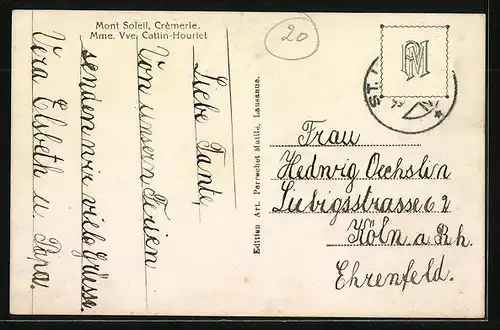 Mont Soleil, Crèmerie.
Mme. Vve. Cattin-Hourlet
20
Liebe Tante,
Von unsern Ferien
senden wir viele Grüsse.
Vera Elsbeth u. Papa.
Edition Art. Perrochet Matile, Lausanne.
ST.
Frau
Hedwig Oechslin
Liebigsstrasse 62
Köln a. Rh.
Ehrenfeld.